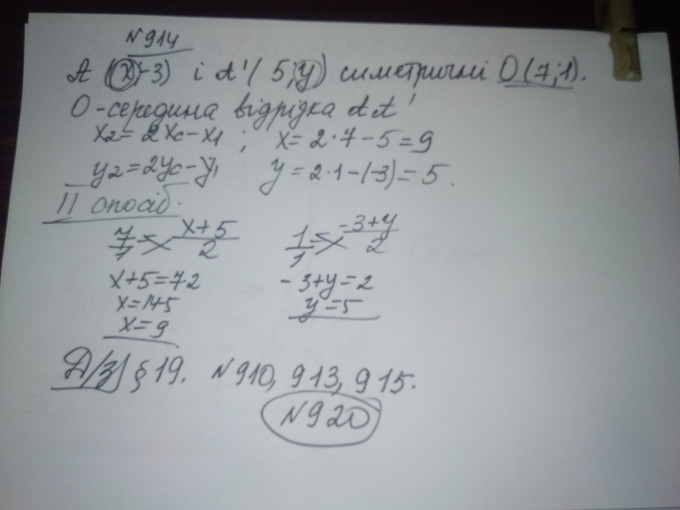 N914
A (x;-3) і A'( 5;y) симетричні O(7;1).
O-середина відрізка AA'
x2=2xc-x1; x=2·7-5=9
y2=2yc-y1 y=2·1-(-3)=5.
II спосіб.
7/1=x+5/2 1/1=-3+y/2
x+5=7·2 -3+y=2
x=14-5 y=5
x=9
Д/з §19. N910, 913, 915.
N920